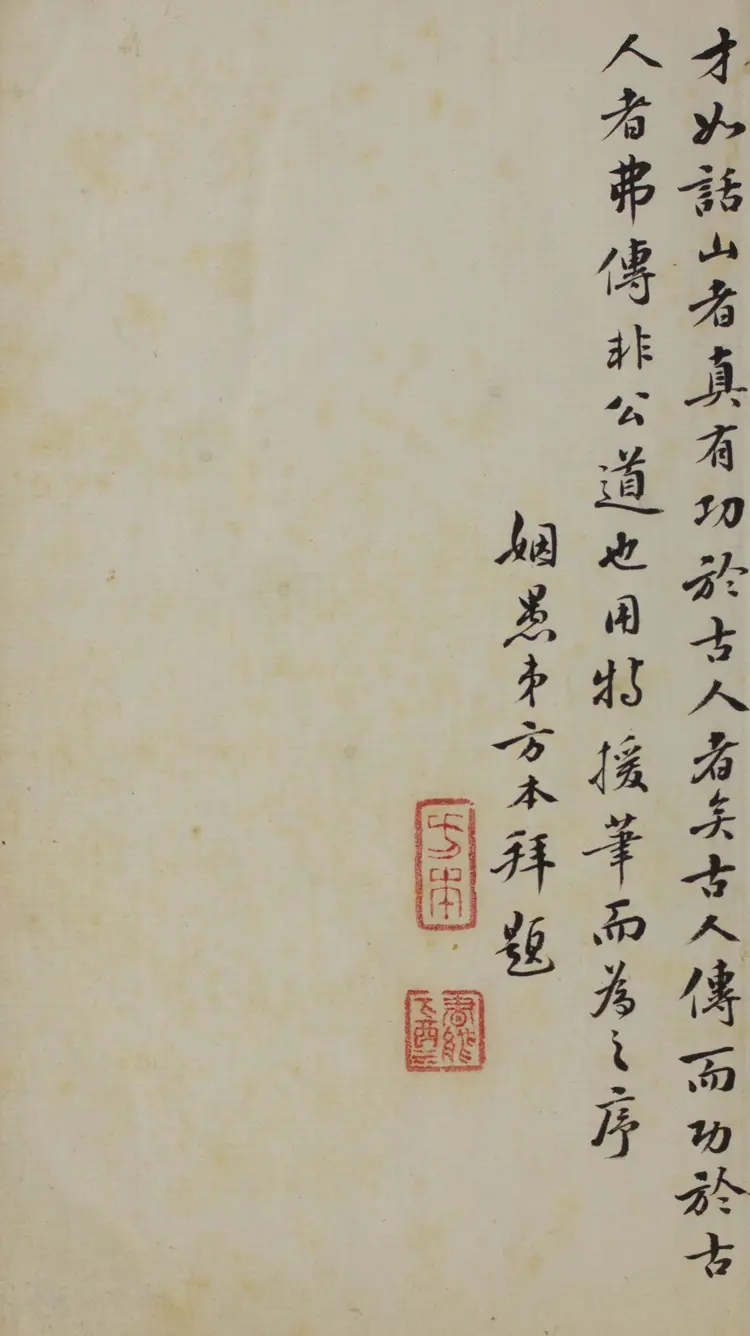 才如話山者真有功於古人者矣古人傳而功於古
人者弗傳非公道也用特援筆而為之序
姻愚弟方本拜題
方本